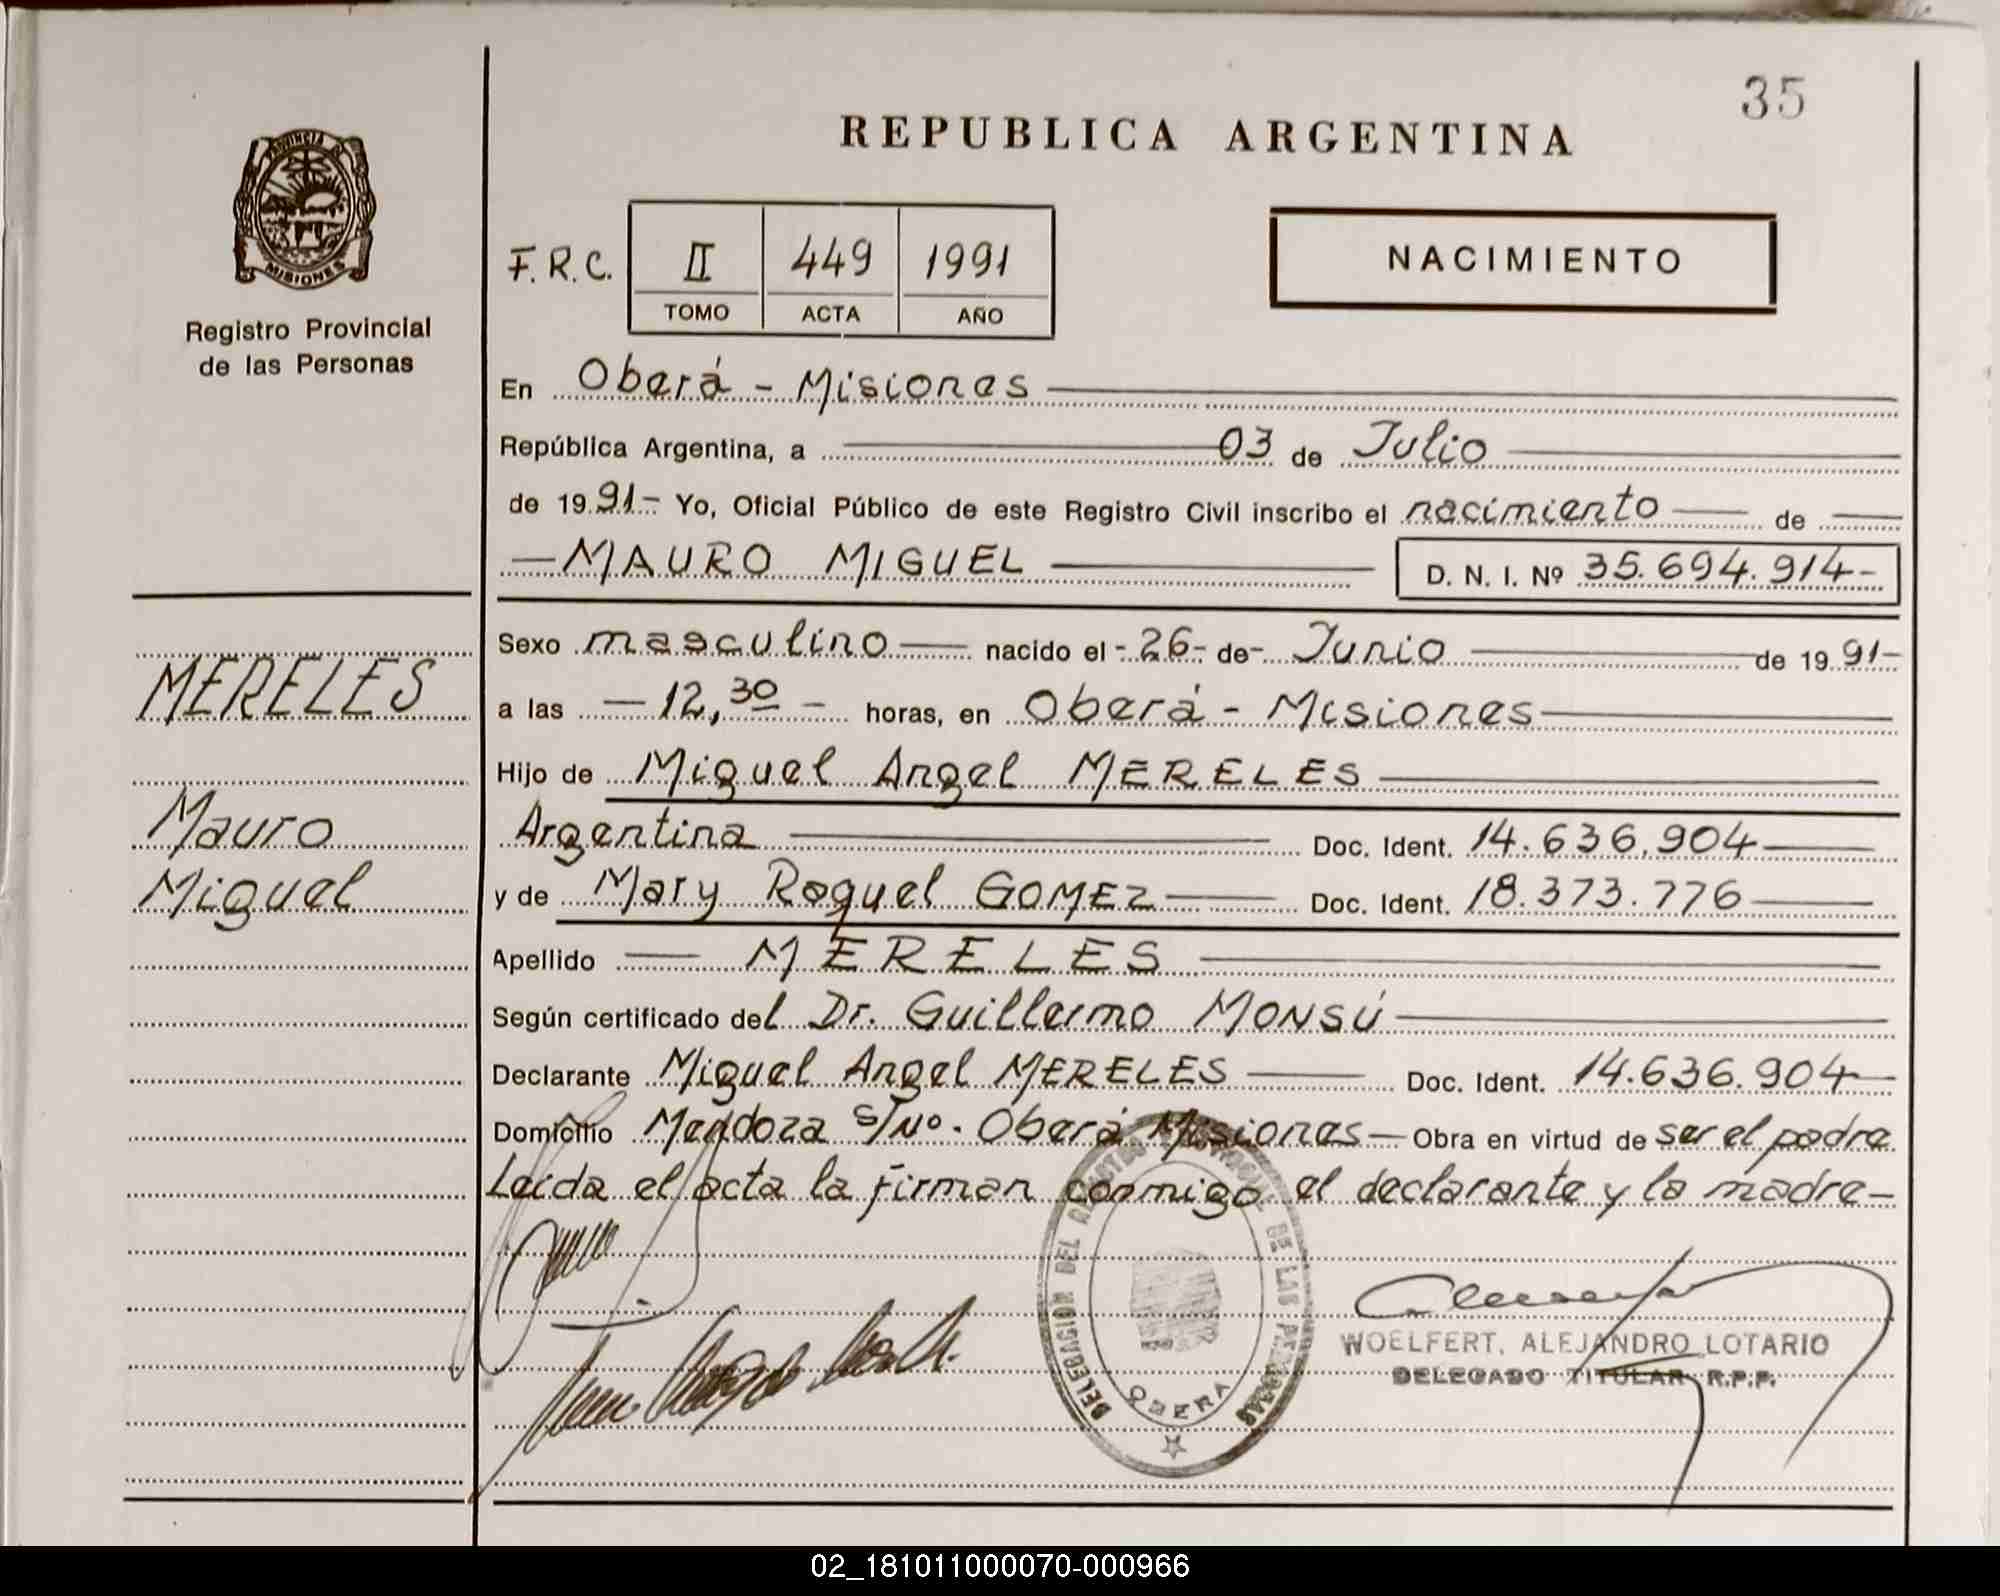 35
REPUBLICA ARGENTINA
PROVINCIA DE
MISIONES
Registro Provincial
de las Personas
F.R.C. II 449 1991
TOMO ACTA AÑO
NACIMIENTO
En Oberá - Misiones
República Argentina, a 03 de Julio
de 1991- Yo, Oficial Público de este Registro Civil inscribo el nacimiento de
MAURO MIGUEL D. N. I. Nº 35.694.914-
Sexo masculino nacido el -26- de- Junio de 1991-
a las - 12,30 - horas, en Oberá - Misiones
Hijo de Miguel Angel MERELES
Argentina Doc. Ident. 14.636.904
y de Mary Raquel GOMEZ Doc. Ident. 18.373.776
Apellido MERELES
Según certificado del Dr. Guillermo MONSÚ
Declarante Miguel Angel MERELES Doc. Ident. 14.636.904
Domicilio Mendoza S/Nº. Oberá Misiones - Obra en virtud de ser el padre
Leída el acta la firman conmigo el declarante y la madre-
MERELES
Mauro
Miguel
DELEGACION DEL REGISTRO PROVINCIAL DE LAS PERSONAS
OBERA
WOELFERT, ALEJANDRO LOTARIO
DELEGADO TITULAR R.P.P.
02_181011000070-000966